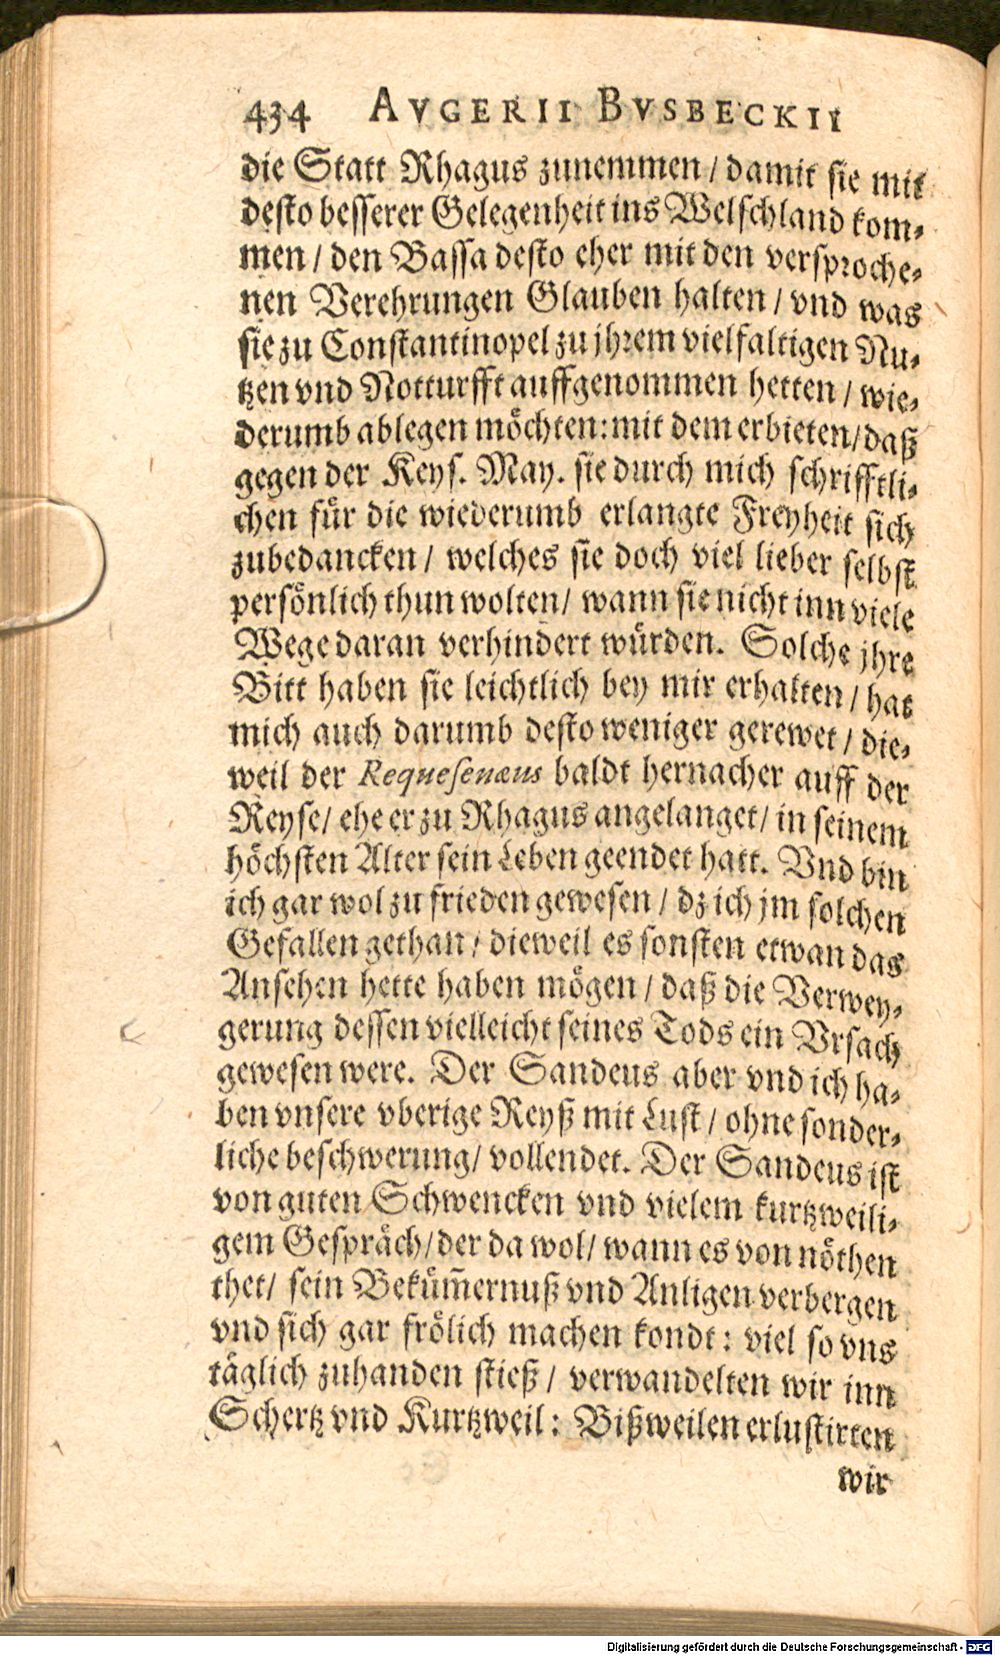 434 AVGERII BVSBECKII
die Statt Rhagus zunemmen / damit sie mit
desto besserer Gelegenheit ins Welschland kom⸗
men / den Bassa desto eher mit den versproche⸗
nen Verehrungen Glauben halten / vnd was
sie zu Constantinopel zu jhrem vielfaltigen Nu⸗
tzen vnd Notturfft auffgenommen hetten / wie⸗
derumb ablegen möchten: mit dem erbieten / daß
gegen der Keys. May. sie durch mich schrifftli⸗
chen für die wiederumb erlangte Freyheit sich
zubedancken / welches sie doch viel lieber selbst
persönlich thun wolten / wann sie nicht inn viele
Wege daran verhindert würden. Solche jhre
Bitt haben sie leichtlich bey mir erhalten / hat
mich auch darumb desto weniger gerewet / die⸗
weil der Requesenæus baldt hernacher auff der
Reyse / ehe er zu Rhagus angelanget / in seinem
höchsten Alter sein Leben geendet hatt. Vnd bin
ich gar wol zu frieden gewesen / dz ich jm solchen
Gefallen gethan / dieweil es sonsten etwan das
Ansehen hette haben mögen / daß die Verwey⸗
gerung dessen vielleicht seines Tods ein Vrsach
gewesen were. Der Sandeus aber vnd ich ha⸗
ben vnsere vberige Reyß mit Lust / ohne sonder⸗
liche beschwerung / vollendet. Der Sandeus ist
von guten Schwencken vnd vielem kurtzweili⸗
gem Gespräch / der da wol / wann es von nöthen
thet / sein Bekűm̄ernuß vnd Anligen verbergen
vnd sich gar frölich machen kondt: viel so vns
täglich zuhanden stieß / verwandelten wir inn
Schertz vnd Kurtzweil: Bißweilen erlustirten
wir
Digitalisierung gefördert durch die Deutsche Forschungsgemeinschaft - DFG